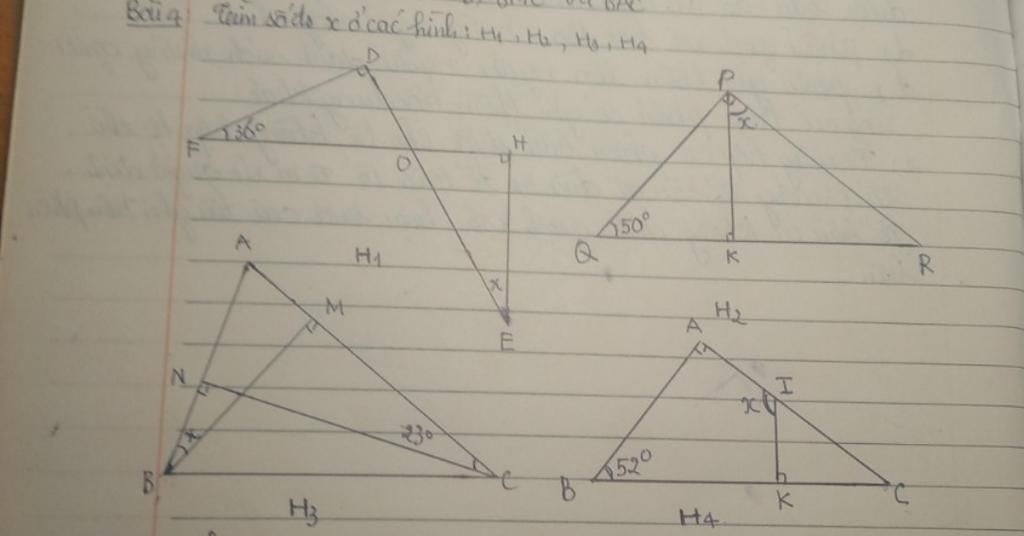 Bài 4: Tìm số đo x ở các hình: H1, H2, H3, H4
D
F 36°
O
H
x
E
H1
P
x
Q 50°
K
R
H2
A
M
N
x
23°
B
C
H3
A
I
x
B 52°
K
C
H4